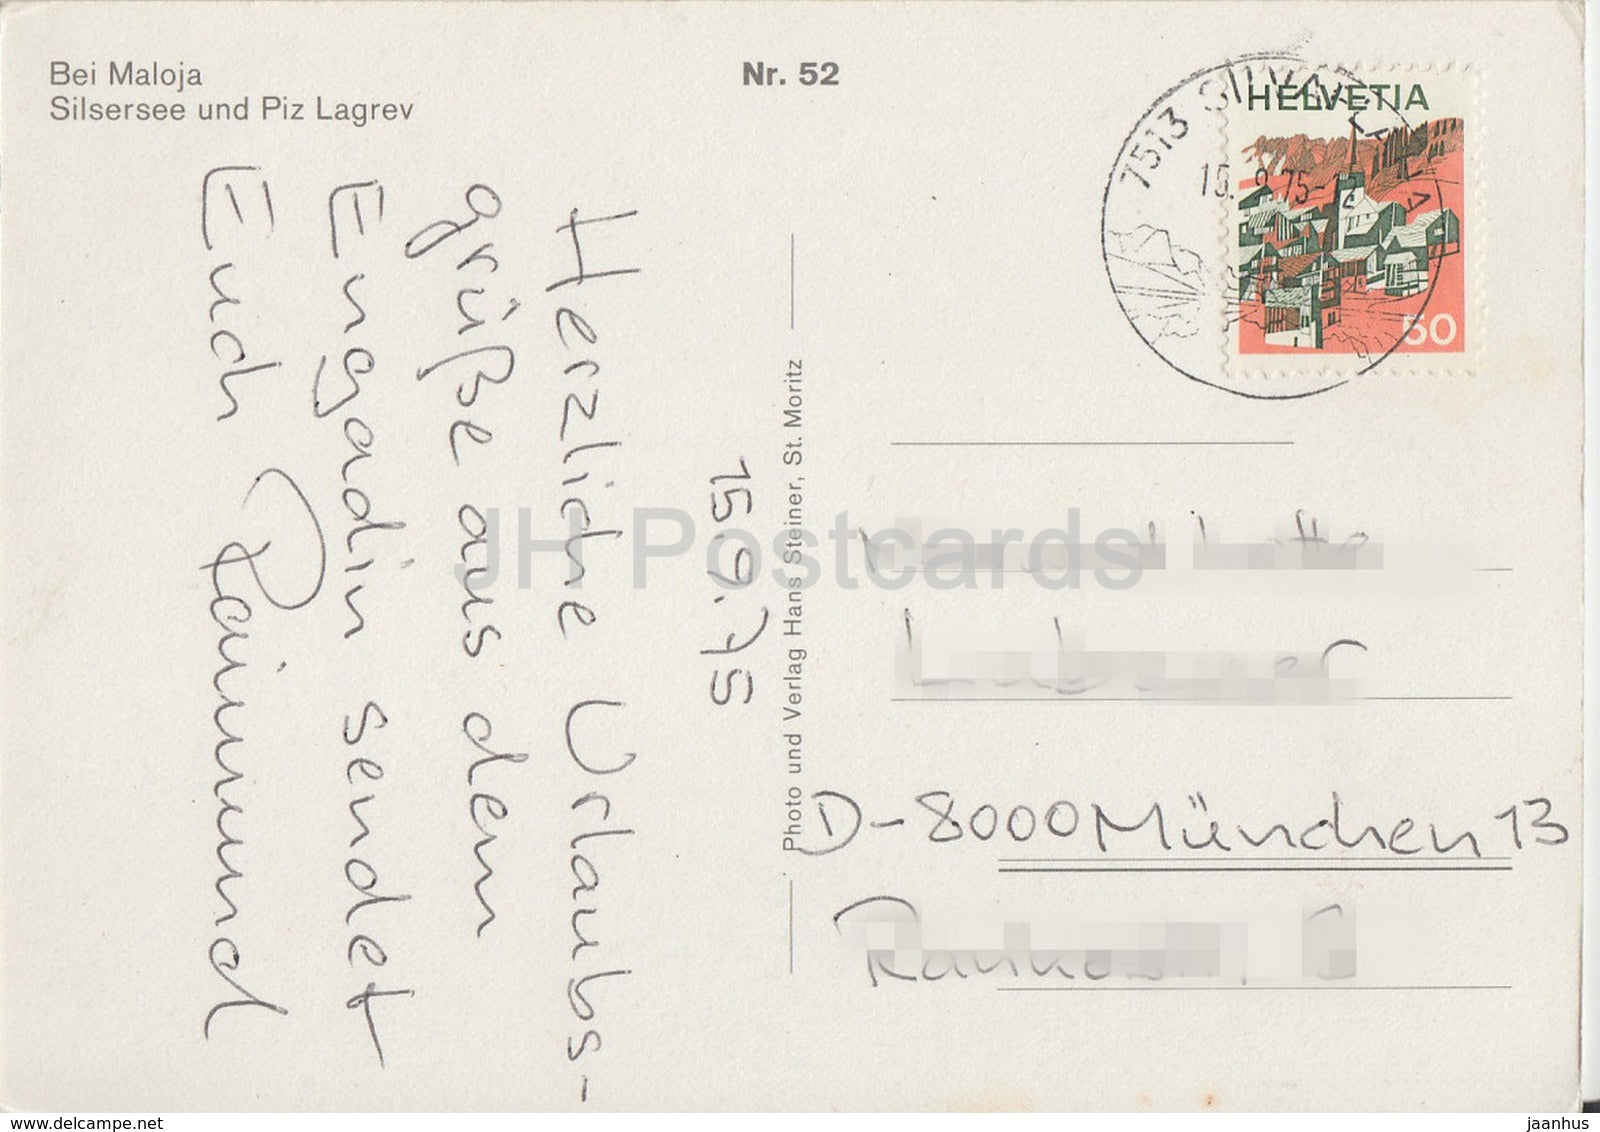 Bei Maloja
Silsersee und Piz Lagrev
Nr. 52
HELVETIA
50
7513 SILVAPLANA
15. 9. 75
15.9.75
Herzliche Urlaubs-
grüße aus dem
Engadin sendet
Euch Raimund
Photo und Verlag Hans Steiner, St. Moritz
D-8000 München 13
JH Postcards
www.delcampe.net
jaanhus